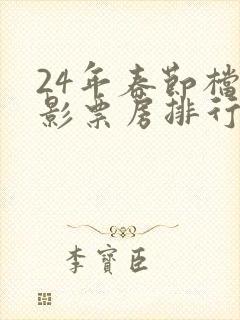 24年春节檔
影票房排行
李寳臣